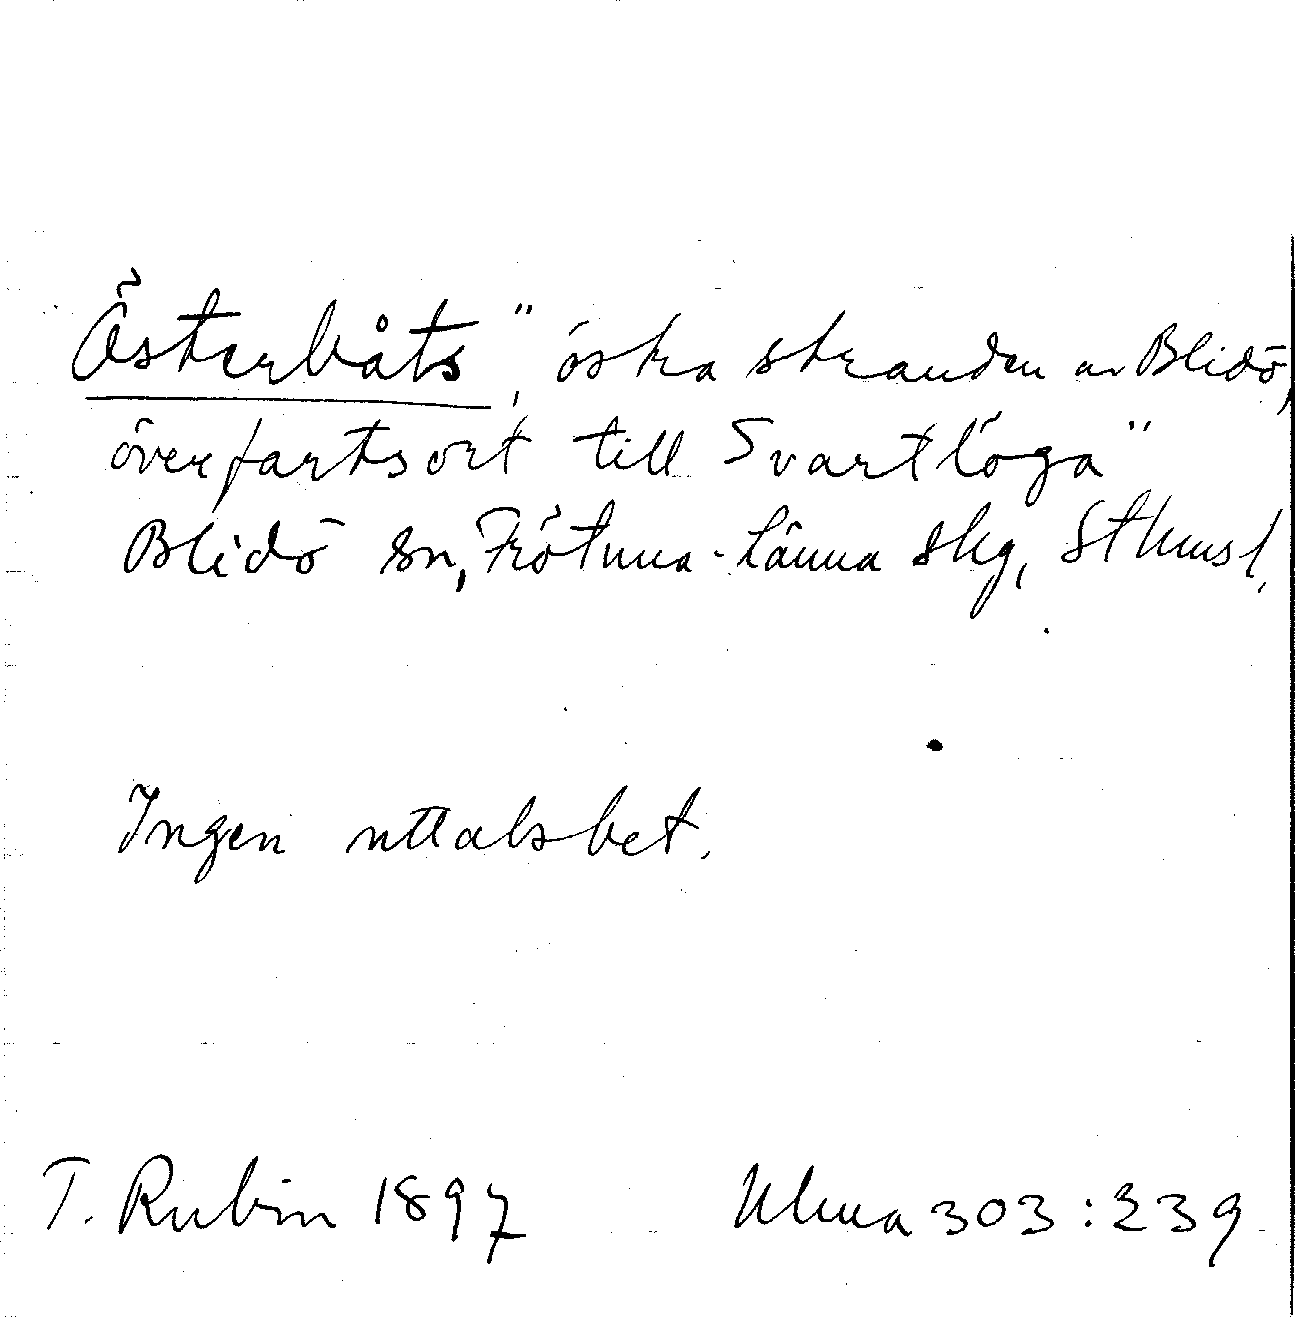 Österbåts, "östra stranden av Blidö,
överfartsort till Svartlöga"
Blidö sn, Frötuna-Länna skg, Sthmsl.
Ingen uttalsbet.
T. Rubin 1897 Ulma 303:239